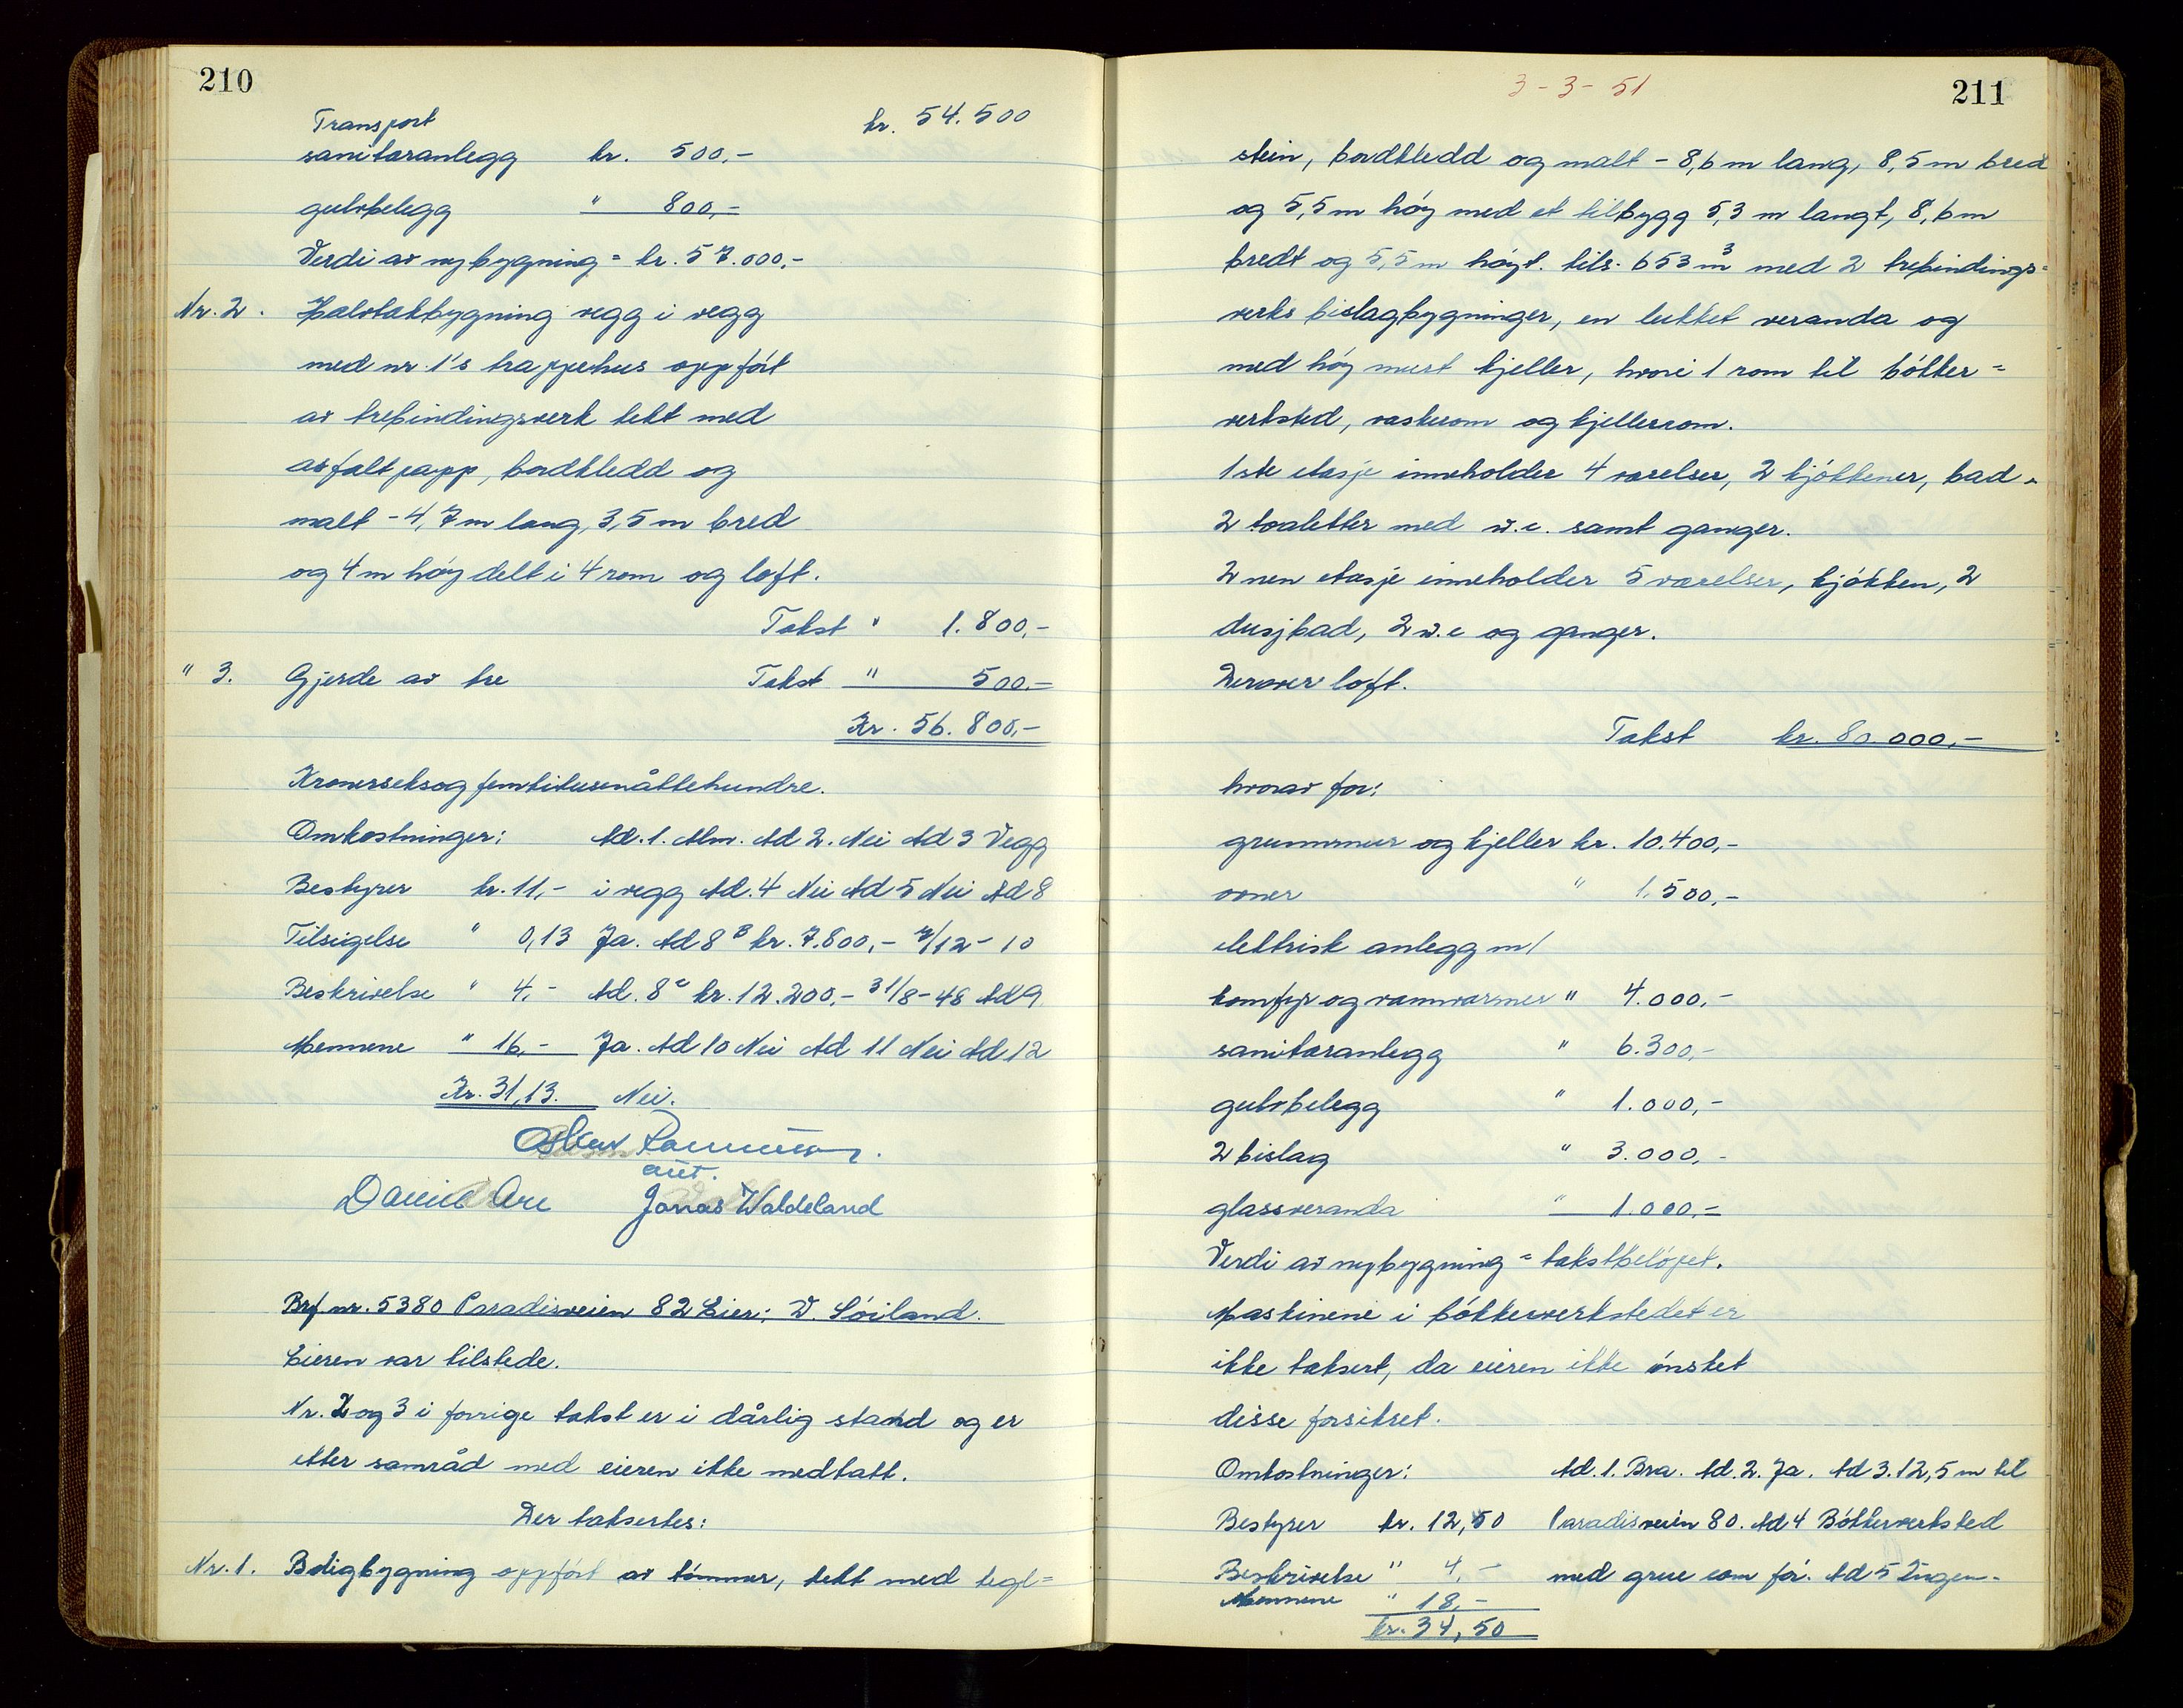 210
Transport kr. 54.500
sanitæranlegg kr. 500,-
gulvbelegg " 800,-
Verdi av nybygning = kr. 57.000,-
Nr. 2. Halvtakbygning vegg i vegg
med nr. 1's trappehus oppført
av trebindingsverk tekt med
asfaltpapp, bordkledd og
malt - 4,7 m lang, 3,5 m bred
og 4 m høy delt i 4 rom og loft.
Takst " 1.800,-
" 3. Gjerde av tre Takst " 500.-
Kr. 56.800,-
Kronerseksogfemtitusenåttehundre.
Omkostninger: Ad. 1. Alm. Ad 2. Nei Ad 3 Vegg
Bestyrer kr. 11,- i vegg Ad. 4 Nei Ad 5 Nei Ad 8
Tilsigelse " 0,13 Ja. Ad 8 B kr. 7.800,- 7/12-10
Beskrivelse " 4,- Ad. 8 c kr. 12.200,- 31/8-48 Ad 9
Mennene " 16,- Ja. Ad 10 Nei Ad 11 Nei Ad 12
Kr. 31,13. Nei.
aut.
Jonas Waldeland
Brf. nr. 5380 Paradisveien 82 Eier: W. Söiland.
Eieren var tilstede.
Nr. 2 og 3 i forrige takst er i dårlig stand og er
etter samråd med eieren ikke medtatt.
Der taksertes:
Nr. 1. Boligbygning oppført av tømmer, tekt med tegl=
3-3-51
211
stein, bordkledd og malt - 8,6 m lang, 8,5 m bred
og 5,5 m høy med et tilbygg 5,3 m langt, 8,6 m
bredt og 5,5 m høyt. tils. 653 m3 med 2 trebindings=
verks bislagbygninger, en lukket veranda og
med høy murt kjeller, hvori 1 rom til bøkker=
verksted, vaskerom og kjellerrom.
1ste etasje inneholder 4 værelser, 2 kjøkkener, bad,
2 toaletter med w.c. samt ganger.
2nen etasje inneholder 5 værelser, kjøkken, 2
dusjbad, 2 w.c og ganger.
Derover loft.
Takst kr. 80.000,-
hvorav for:
grunnmur og kjeller kr. 10.400,-
ovner " 1.500,-
elektrisk anlegg m/
komfyr og vannvarmer " 4.000,-
sanitæranlegg " 6.300,-
gulvbelegg " 1.000,-
2 bislag " 3.000,-
glassveranda " 1.000,-
Verdi av nybygning = takstbeløpet.
Maskinene i bøkkerverkstedet er
ikke taksert, da eieren ikke ønsket
disse forsikret.
Omkostninger: Ad. 1. Bra. Ad. 2. Ja. Ad 3. 12,5 m til
Bestyrer kr. 12,50 Paradisveien 80. Ad 4 Bøkkerverksted
Beskrivelse " 4,- med grue som før. Ad 5 Ingen.
Mennene " 18,-
kr. 34,50